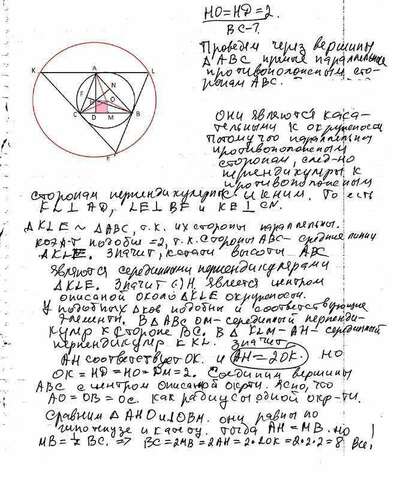 HO=HD=2.
BC-?
Проведём через вершины
△ABC прямые параллельные
противоположным сто-
ронам ABC.
K
A
L
F
N
H
O
C
D
M
B
E
Они являются каса-
тельными к окружности
Потому что параллельны
противоположным
сторонам, след-но
перпендикулярны к
противоположным
сторонам перпендикулярны к ним. То есть
KL⊥AD, LE⊥BF и KE⊥CN.
△KLE ~ △ABC, т.к. их стороны параллельны.
коэф-т подобия =2, т.к. стороны ABC - средние линии
△KLE. Значит, высоты ABC
являются серединными перпендикулярами
△KLE. Значит (·)H является центром
описанной около △KLE окружности.
У подобных △ков подобны и соответствующие
элементы. В △ABC OM - серединный перпенди-
куляр к стороне BC. В △KLM - AH - серединный
перпендикуляр к KL. Значит
AH соответствует OK. и AH=2OK. но
OK=HD=HO=DM=2. Соединим вершины
ABC с центром описанной окр-ти. Ясно, что
AO=OB=OC. как радиусы одной окр-ти.
Сравним △AHO и △OBM. они равны по
гипотенузе и катету. Тогда AH=MB. но
MB=½BC. => BC=2MB=2AH=2·2OK=2·2·2=8 Все!